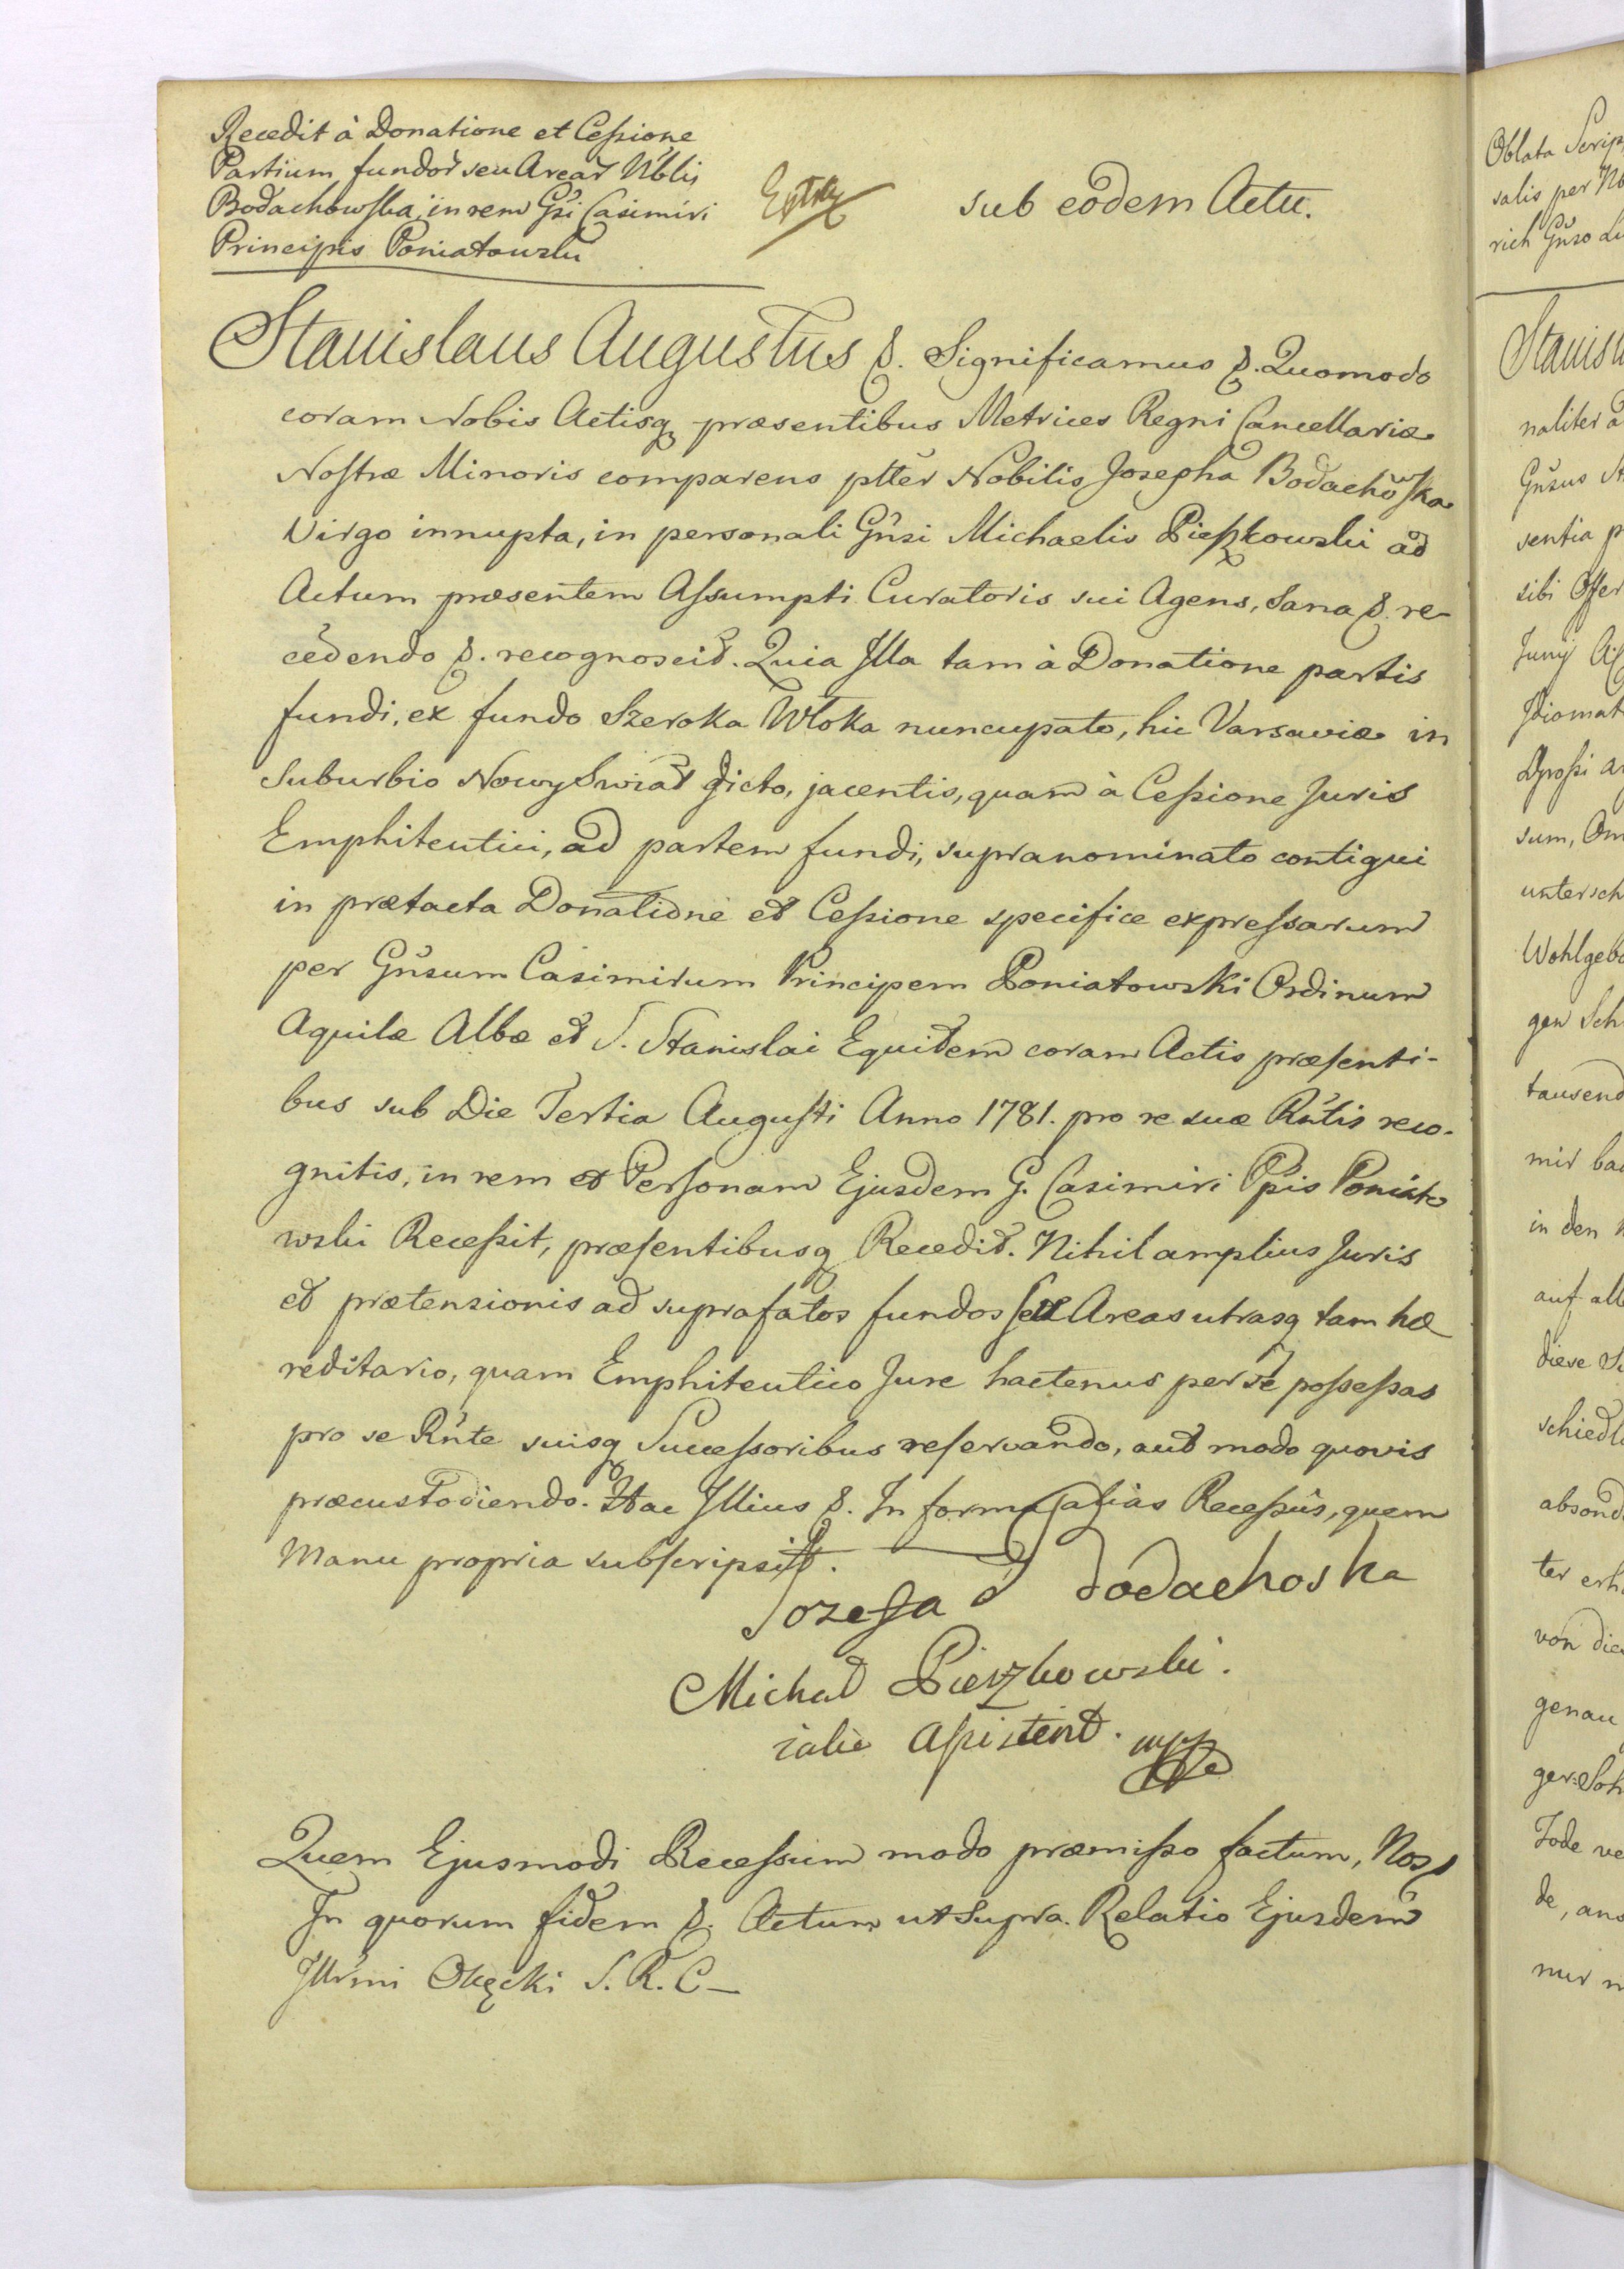 Recedit à Donatione et Cessione
Partium fundor seu Arear Nblis
Bodachowska, in rem Gsi Casimiri
Principis Poniatowski
Extr
sub eodem Actu.
Stanislaus Augustus &. Significamus &. Quomodo
coram Nobis Actisq præsentibus Metrices Regni Cancellariæ
Nostræ Minoris comparens ptter Nobilis Josepha Bodachowska
Virgo innupta, in personali Gnsi Michaelis Pieszkowski ad
Actum præsentem Assumpti Curatoris sui Agens, Sana &. re-
cedendo &. recognoscit. Quia Illa tam à Donatione partis
fundi, ex fundo Szeroka Włoka nuncupato, hic Varsaviæ in
Suburbio Nowy Swiat dicto, jacentis, quam à Cessione Juris
Emphiteutici, ad partem fundi, supranominato contigui
in prætacta Donatione et Cessione specifice expressarum
per Gnsum Casimirum Principem Poniatowski Ordinum
Aquilæ Albæ et S. Stanislai Equitem coram Actis præsenti-
bus sub Die Tertia Augusti Anno 1781. pro re suæ Rntis reco-
gnitis, in rem et Personam Ejusdem G. Casimiri Ppis Poniato
wski Recessit, præsentibusq Recedit. Nihil amplius Juris
et prætensionis ad suprafatos fundos seu Areas utrasq tam hæ
reditario, quam Emphiteutico Jure hactenus per se possessas
pro se Rnte suisq Successoribus reservando, aut modo quovis
præcustodiendo. Hac Illius &. In forma alias Recessûs, quem
Manu propria subscripsit.
Jozefa Bodachoska
Michał Pieszkowski.
iako Assistent. mpp
Quem Ejusmodi Recessum modo præmisso factum, Nos &
In quorum fidem &. Actum ut Supra. Relatio Ejusdem
Illrmi Okęcki S. R. C_
Oblata Scrip
salis per No
rich Gnso Lu
Stanisl
naliter a
Gnsus St
sentia p
sibi Offer
Junij
Idiomat
sum, Om
untersch
Wohlgebo
gen Sch
tausend
mir ba
in den
auf all
diese
schiedl
absond
ter erh
von die
genau
Tode ve
de, and
nur